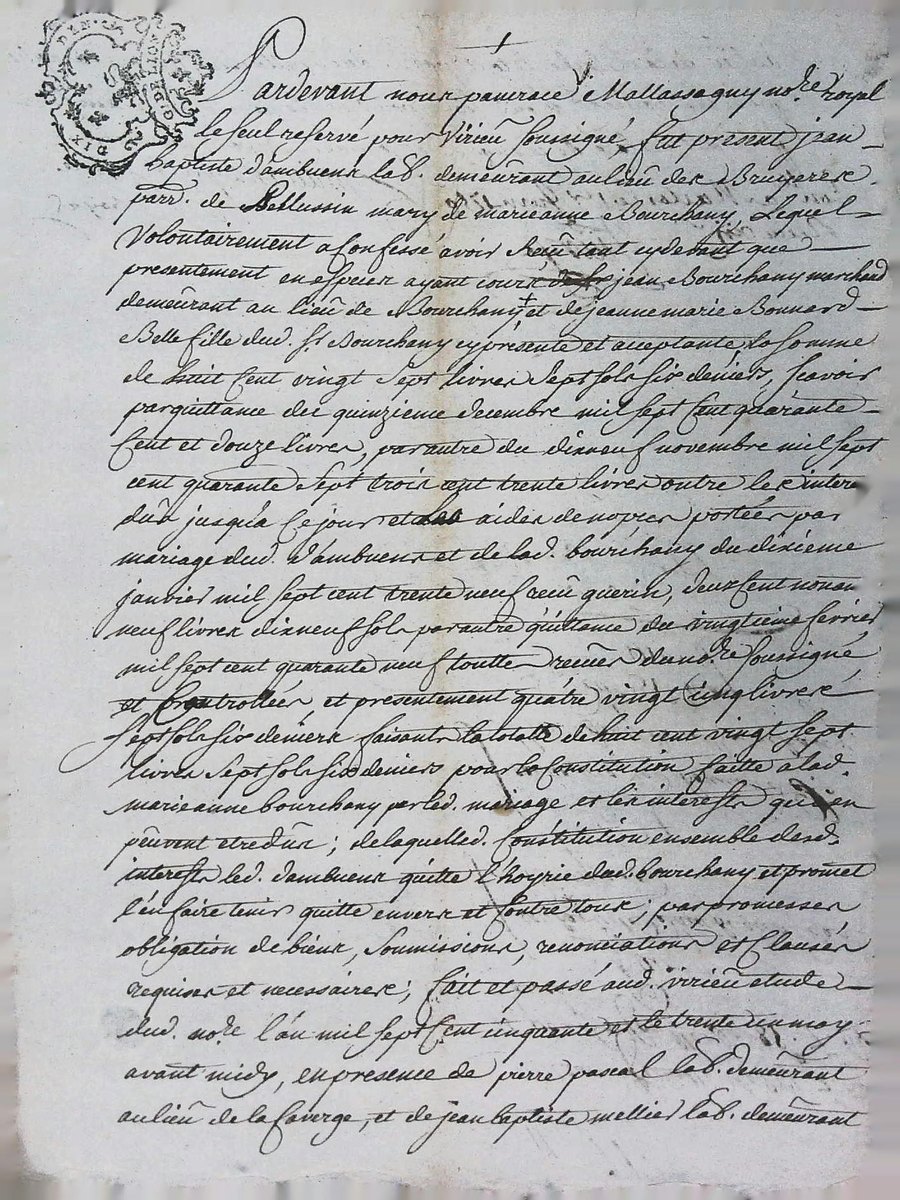 DIX DEN.
Pardevant nous pancrace Mallassagny no.re royal
le seul reservé pour Virieu soussigné, fut present jean
baptiste dambuens lab. demeurant au lieu des Bruyeres
parr. de Pellussin mary de marieanne Bourchany, Lequel
volontairement a Confessé avoir Receu tant cydevant que
presentement en especes ayant cours jean Bourchany marchand
demeurant au lieu de Bourchany + et de jeanne marie Bonnard
Belle fille dud. Sr. Bourchany cy presente et acceptante, la somme
de huit Cent vingt sept livres sept sols six deniers, scavoir
par quittance des quinzieme decembre mil sept Cent quarante
Cent et douze livres, par autre du dixneuf novembre mil sept
cent quarante sept trois cent trente livres outre les intere
dûs jusqu'a ce jour et aides de nopces portées par
mariage dud. dambuens et de lad. bourchany du dixieme
janvier mil sept cent trente neuf receu guerin, deux Cent nonan
neuf livres dixneuf sols par autre quittance du vingtieme fevrier
mil sept cent quarante neuf toutte receues dud. no.re soussigné
et Controllées et presentement quatre vingt cinq livres
sept sols six deniers faisants la totalle de huit cent vingt sept
livres sept sols six deniers pour la Constitution faitte a lad.
marieanne bourchany par led. mariage et les interests qui en
peuvent etre dûs; de laquelled. Constitution ensemble desd.
interests led. dambuens quitte l'hoyrie dud. bourchany et promet
l'en faire tenir quitte envers et Contre tous; par promesses
obligation de biens, soumissions, renonciations et Clauses
requises et necessaires; fait et passé aud. virieu etude
dud. no.re l'an mil sept Cent cinquante et le trente un may
avant midy, en presence de pierre pascal lab. demeurant
au lieu de la faverge, et de jean baptiste mellier lab. demeurant